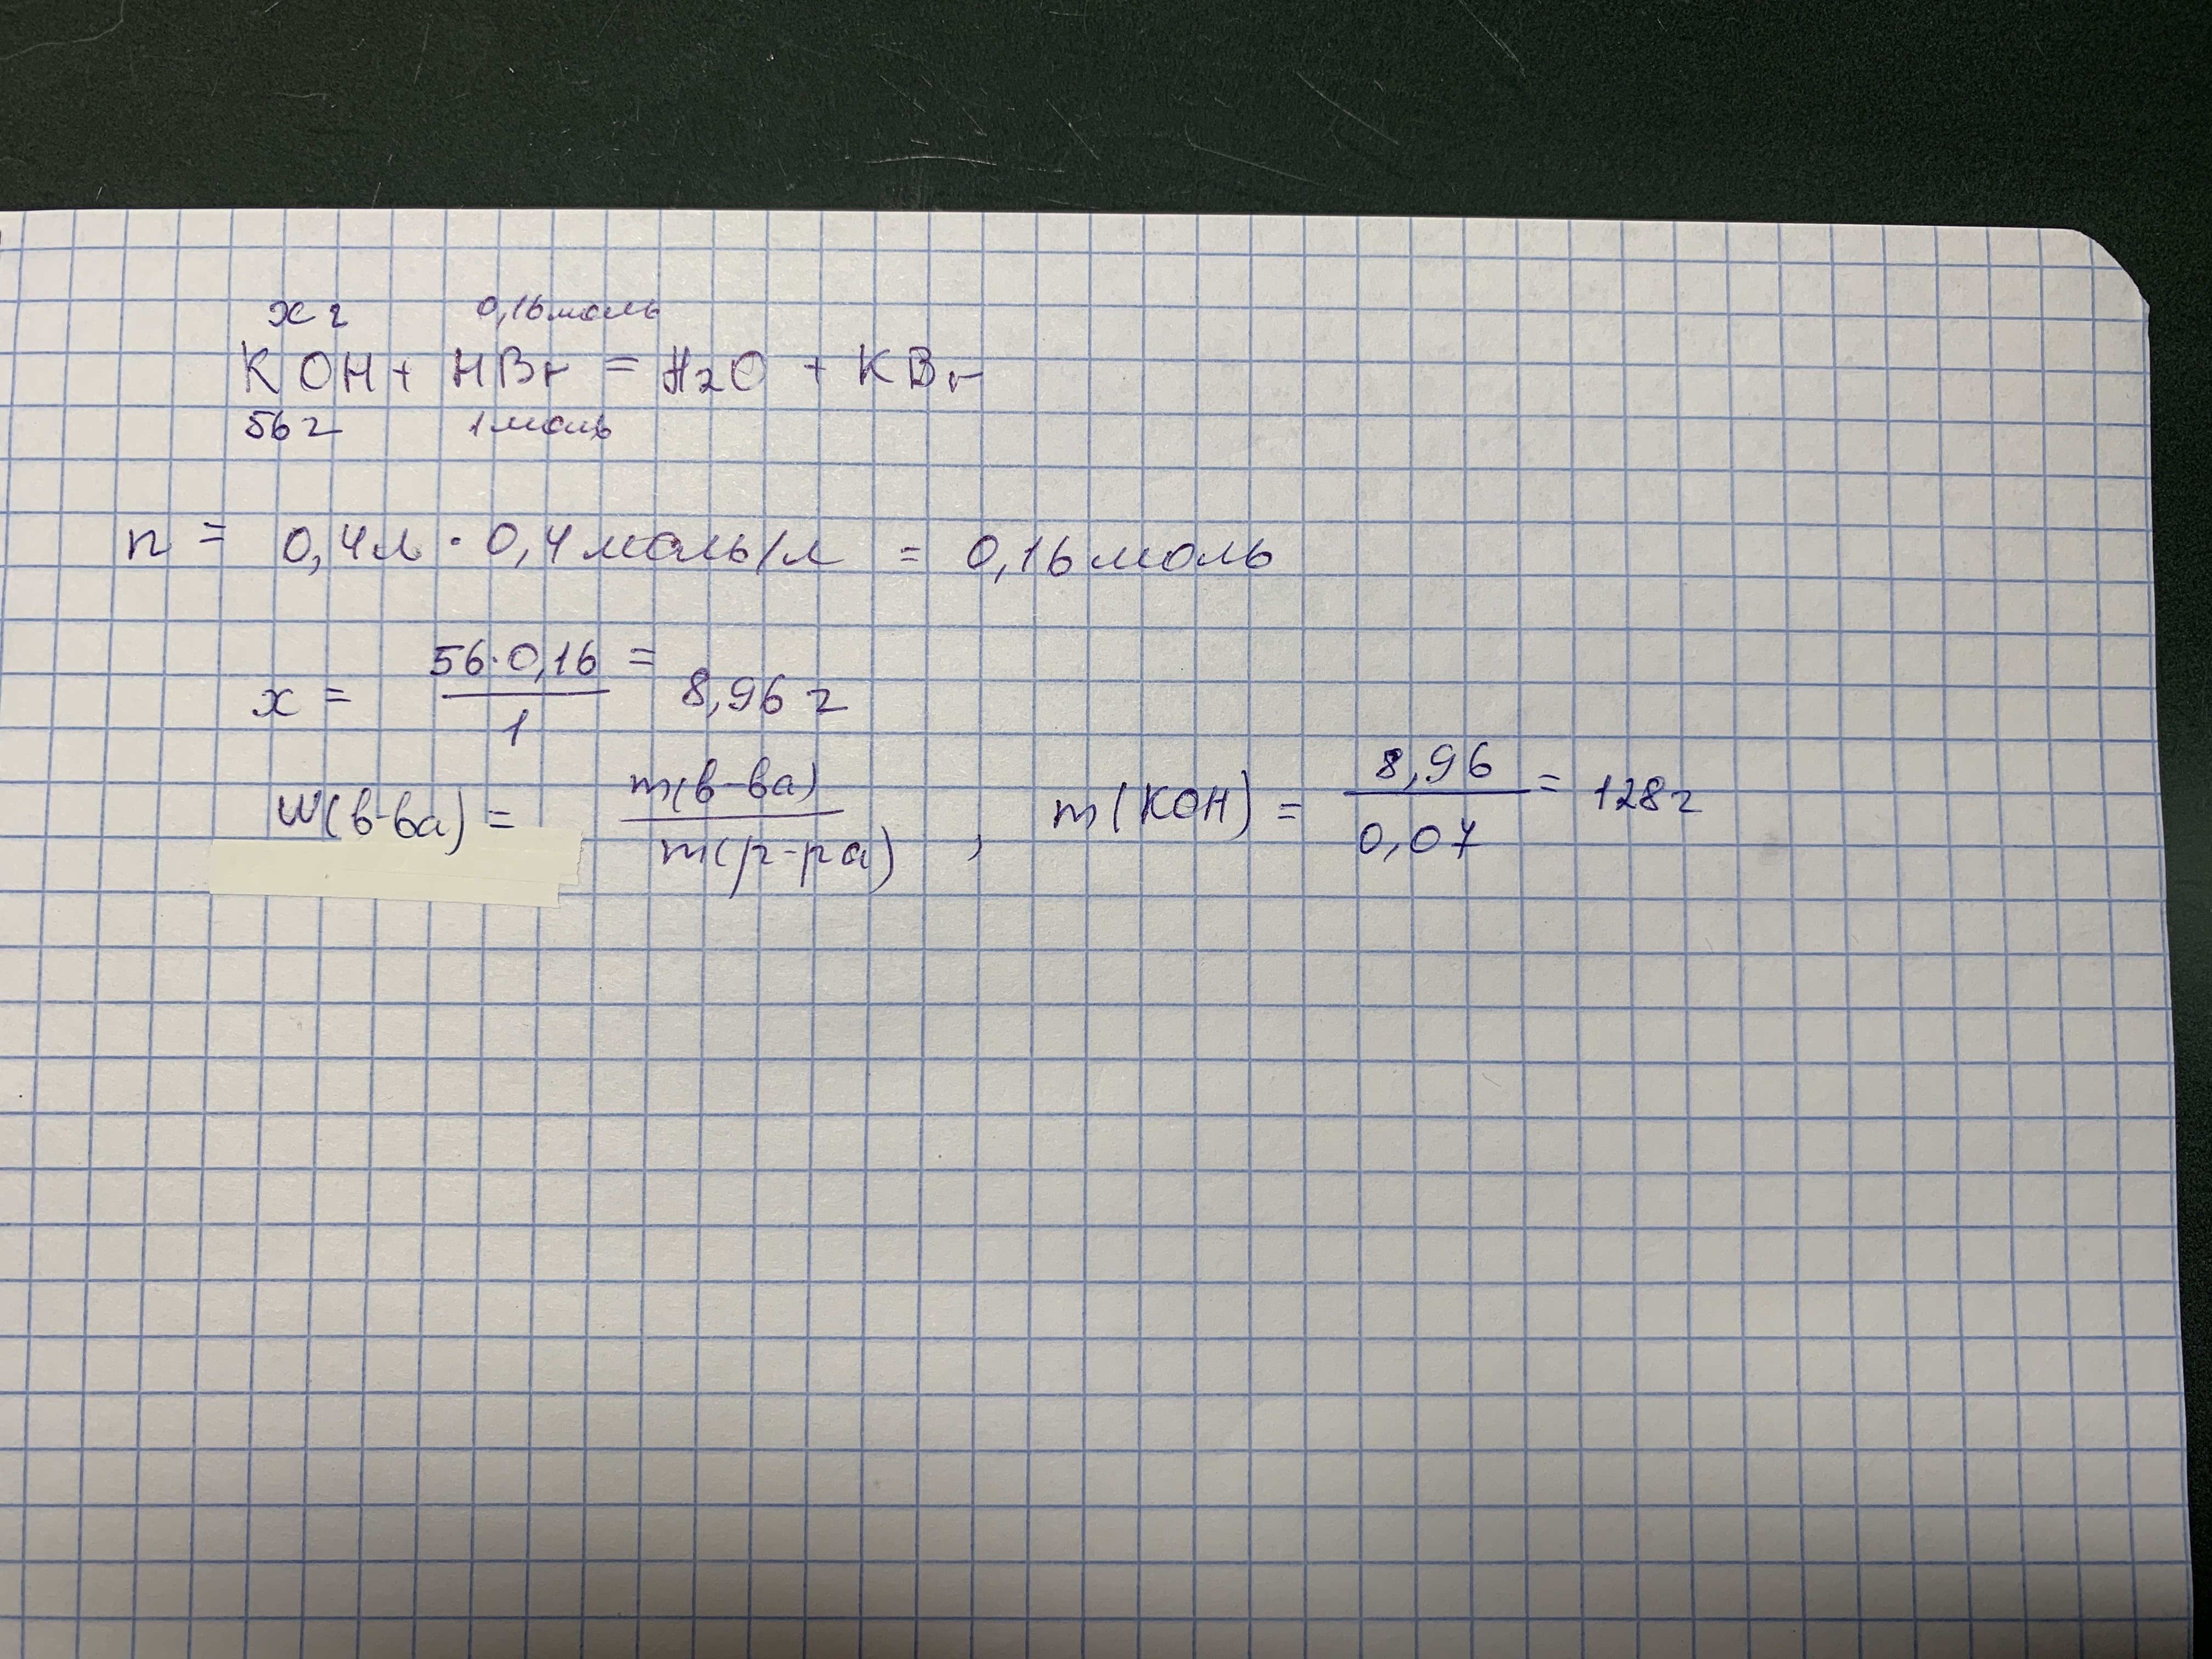 x г 0,16 моль
KOH + HBr = H2O + KBr
56 г 1 моль
n = 0,4 л · 0,4 моль/л = 0,16 моль
x = 56·0,16 / 1 = 8,96 г
W(в-ва) = m(в-ва) / m(р-ра) , m(KOH) = 8,96 / 0,07 = 128 г